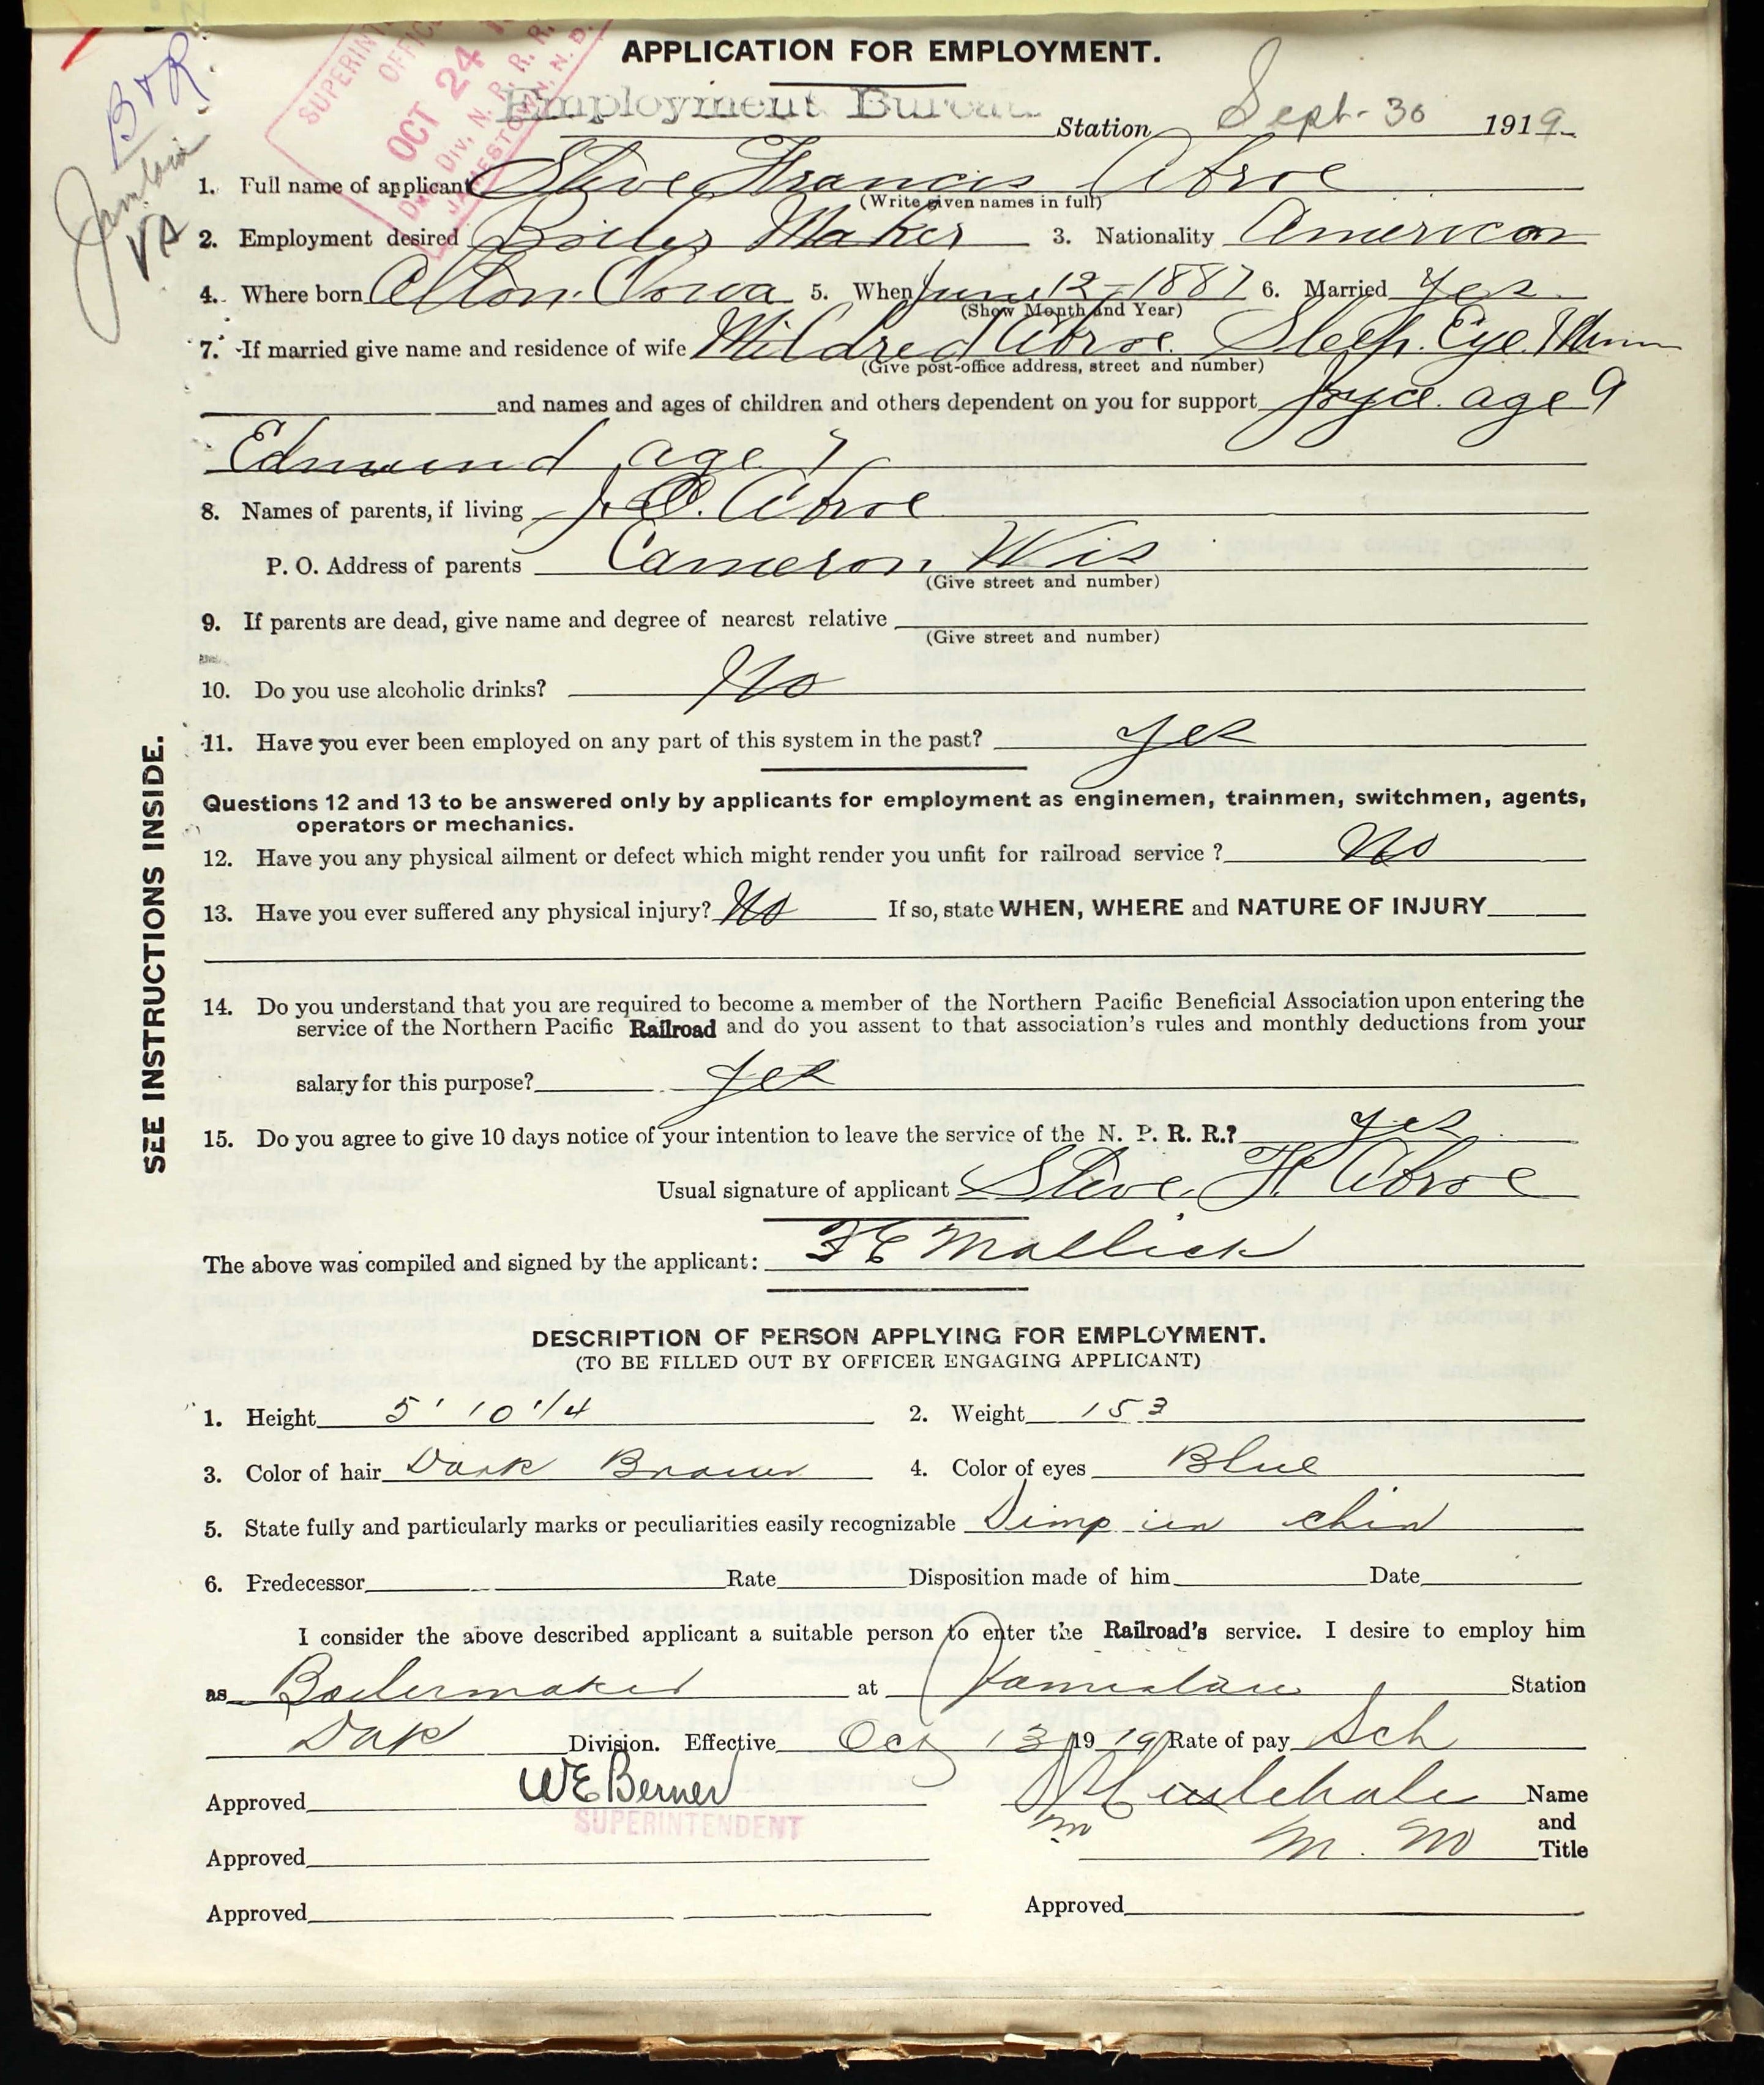 B & R
VA
SUPERIN
OFFIC
OCT 24
Div. N. P. R. R.
JAMESTOWN, N. D.
APPLICATION FOR EMPLOYMENT.
Employment Bureau Station Sept. 30 1919
1. Full name of applicant Steve Francis Abroe
(Write given names in full)
2. Employment desired Boiler Maker 3. Nationality American
4. Where born Alton. Iowa 5. When June 12 - 1887 6. Married Yes
(Show Month and Year)
7. If married give name and residence of wife Mildred Abroe. Sleep. Eye. Minn
(Give post-office address, street and number)
and names and ages of children and others dependent on you for support Joyce. age 9
Edmund age 7
8. Names of parents, if living J. O. Abroe
P. O. Address of parents Cameron, Wis
(Give street and number)
9. If parents are dead, give name and degree of nearest relative
(Give street and number)
10. Do you use alcoholic drinks? No
11. Have you ever been employed on any part of this system in the past? Yes
Questions 12 and 13 to be answered only by applicants for employment as enginemen, trainmen, switchmen, agents,
operators or mechanics.
12. Have you any physical ailment or defect which might render you unfit for railroad service? No
13. Have you ever suffered any physical injury? No If so, state WHEN, WHERE and NATURE OF INJURY
14. Do you understand that you are required to become a member of the Northern Pacific Beneficial Association upon entering the
service of the Northern Pacific Railroad and do you assent to that association's rules and monthly deductions from your
salary for this purpose? Yes
15. Do you agree to give 10 days notice of your intention to leave the service of the N. P. R. R.? Yes
Usual signature of applicant Steve. F. Abroe
The above was compiled and signed by the applicant: F E Mallick
SEE INSTRUCTIONS INSIDE.
DESCRIPTION OF PERSON APPLYING FOR EMPLOYMENT.
(TO BE FILLED OUT BY OFFICER ENGAGING APPLICANT)
1. Height 5' 10 1/4 2. Weight 153
3. Color of hair Dark Brown 4. Color of eyes Blue
5. State fully and particularly marks or peculiarities easily recognizable Dimp in chin
6. Predecessor Rate Disposition made of him Date
I consider the above described applicant a suitable person to enter the Railroad's service. I desire to employ him
as Boilermaker at Jamestown Station
Dak Division. Effective Oct 13 1919 Rate of pay Sch
Approved W E Berner Name
SUPERINTENDENT and
Approved M. M Title
Approved Approved